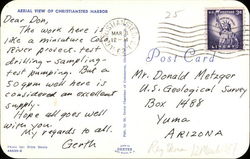 AERIAL VIEW OF CHRISTIANSTED HARBOR
Dear Don,
The work here is
like a miniature Colo.
River project. test
drilling - sampling -
test pumping. But a
50 gpm well here is
considered an excellent
supply.
Hope all goes well
with you.
My regards to all.
Gerth
MAR
12
25
LIBERTY
Post Card
Mr. Donald Metzger
U.S. Geological Survey
Box 1488
Yuma
ARIZONA